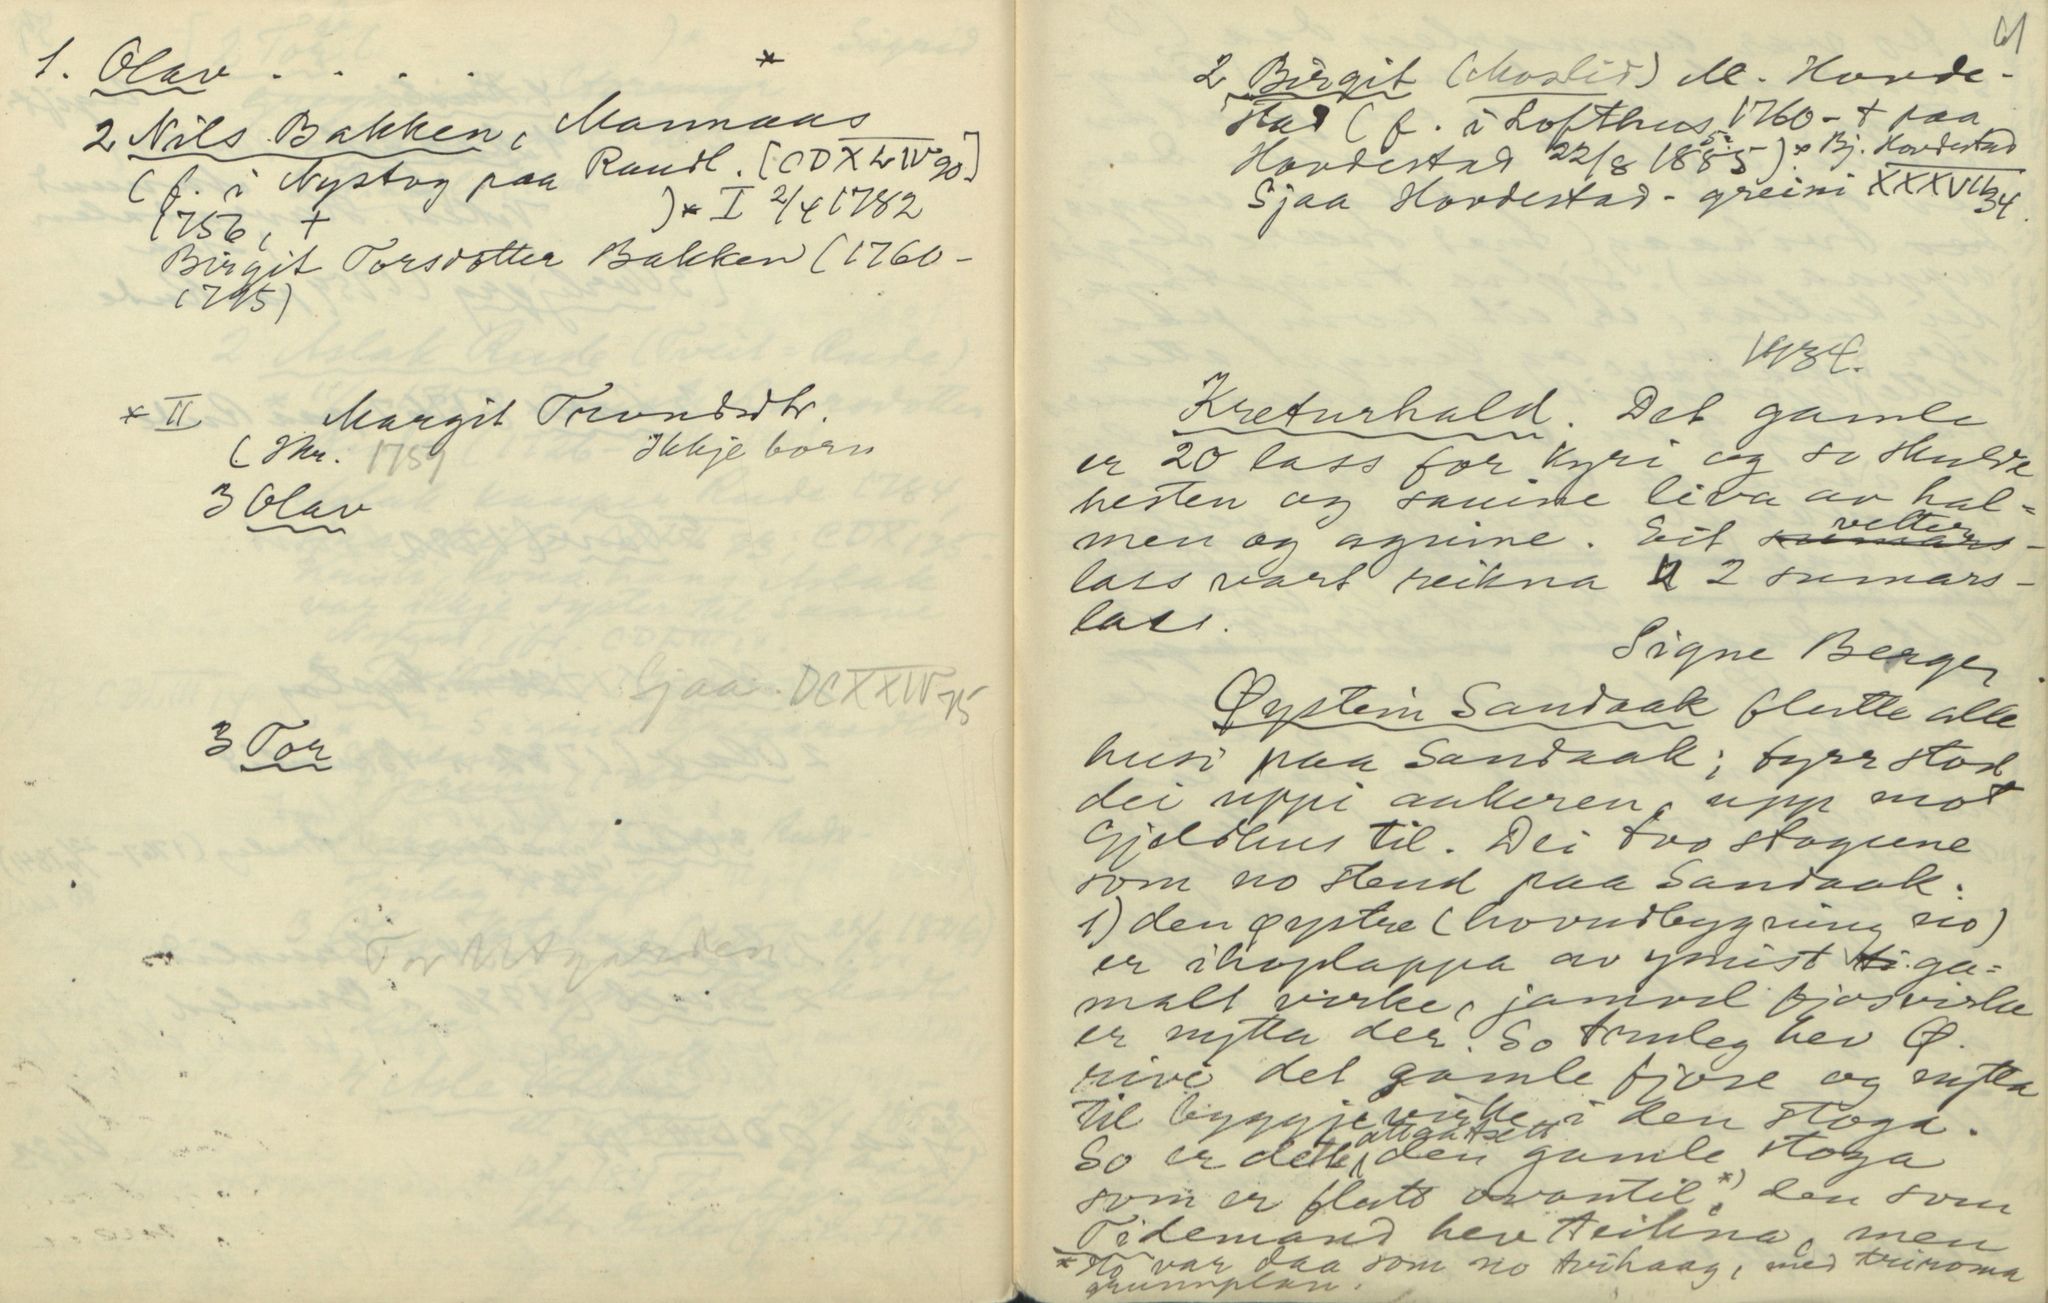 1. Olav . . . . *
2 Nils Bakken, Mannaas
(f. i Nystog paa Raudl. [CDXLIV 90]
1756, + )* I 2/4 1782
Birgit Torsdotter Bakken (1760-
1795)
* II Margit Trondsdtr.
(Skr. 1759 Ikkje born
3 Olav
Sjaa DCXXIV 75
3 Tor
Tor Utgarden
61
2 Birgit (Moslid) M. Hovde-
stad (f. i Lofthus 1760 - + paa
Hovdestad 22/8 1885) * Bj. Hovdestad
Sjaa Hovdestad-greini XXXVII 34.
1934.
Kreturhald. Det gamle
er 20 lass for kyri og so skulde
hesten og sauine liva av hal=
men og agnine. Eit vetter
lass vart reikna 2 sumars-
lass.
Signe Berge.
Øystein Sandaak flutte alle
husi paa Sandaak; fyrr stod
dei uppi aakeren, upp mot
Gjeldhus til. Dei tvo stogune
som no stend paa Sandaak:
1) den øystre (hovudbygning no)
er ihoplappa av ymist ga=
malt virke, jamvel fjosvirke
er nytta der. So truleg hev Ø.
rive det gamle fjose og nytta
til byggjevirke i den stoga.
So er dette attgåtsett den gamle stoga
som er flutt ovantil *) den som
Tidemand hev teikna, men
* Ho var daa som no tvihaag, med triroma
grunnplan.